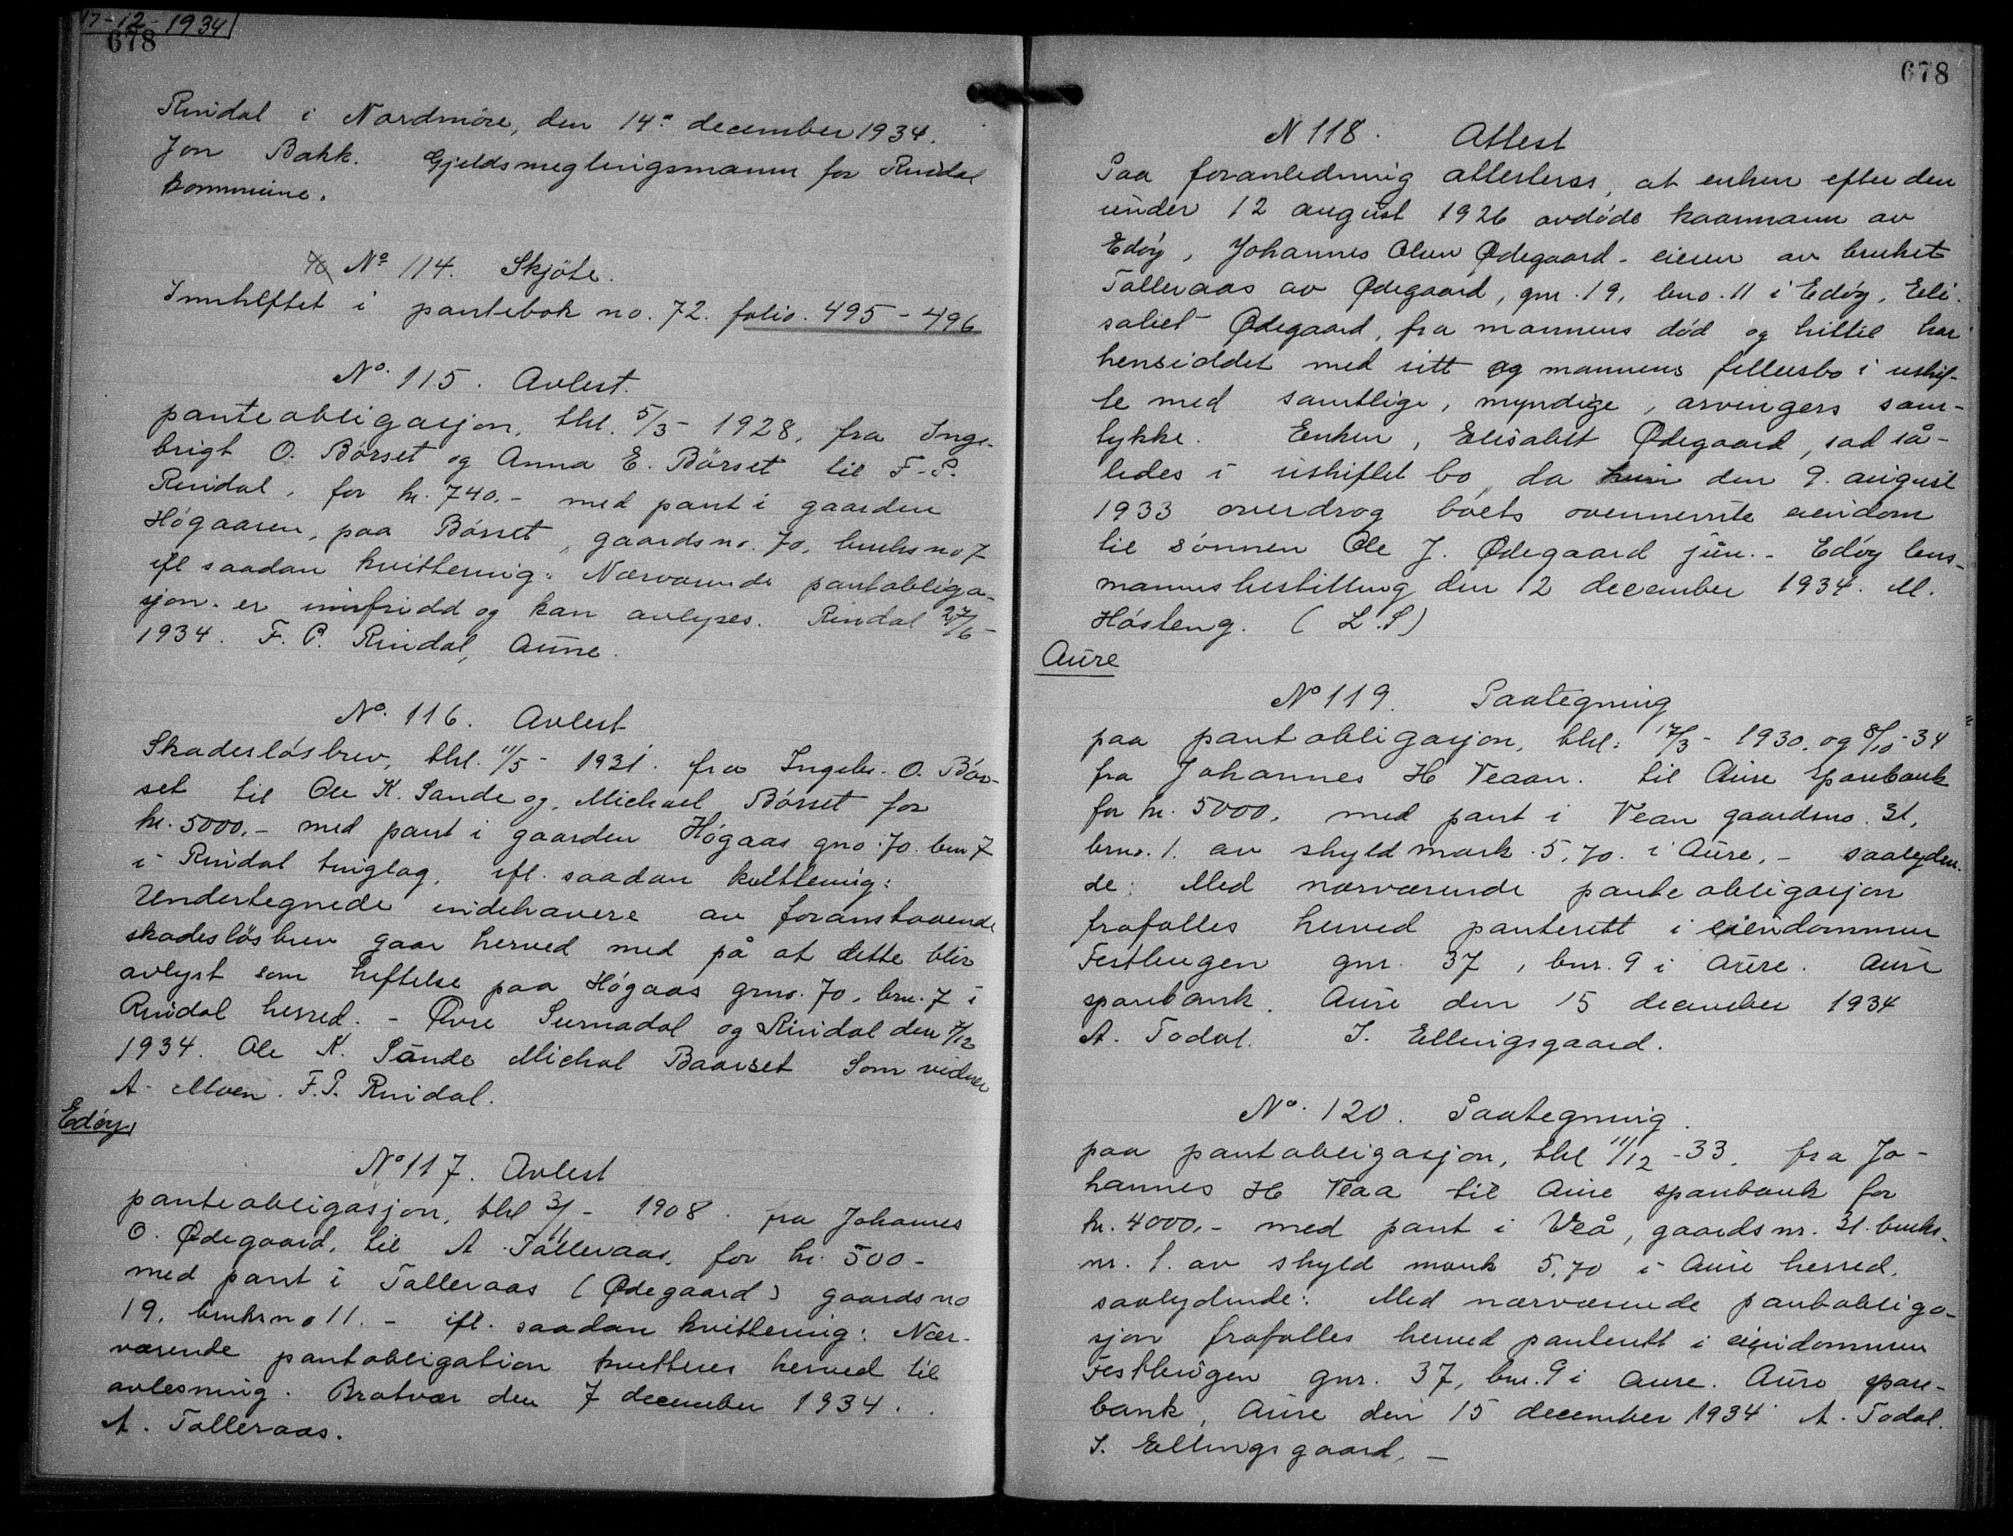 17-12-1934
678
Rindal i Nordmöre, den 14de december 1934.
Jon Bakk. Gjeldsmeglingsmann for Rindal
kommune.
No 114. Skjöte.
Innheftet i pantebok no. 72. folio. 495-496
No. 115. Avlest.
panteobligasjon, thl. 5/3 - 1928, fra Inge-
brigt O. Börset og Anna E. Börset til F. P.
Rindal, for kr. 740.- med pant i gaarden
Högaasen, paa Börset, gaardsno. 70, bruksno 7
ifl saadan kvittering: Nærværende pantobliga-
sjon er innfridd og kan avlyses. Rindal 27/6-
1934. F. P. Rindal, Aune.
No. 116. Avlest
Skadeslösbrev, thl. 11/5 - 1931. fra Ingebr. O. Bör-
set til Ole K. Sande og Michael Börset for
kr. 5000.- med pant i gaarden Högaas gno. 70. bnr 7
i Rindal tinglag, ifl. saadan kvittering:
Undertegnede indehavere av foranstaaende
skadeslösbrev gaar herved med på at dette blir
avlyst som heftelse paa Högaas gno. 70, bnr. 7 i
Rindal herred. - Övre Surnadal og Rindal den 7/12
1934. Ole K. Sande Michal Baarset Som vidner
A. Moen. F. P. Rindal.
Edöy,
No 117. Avlest
panteobligasjon, thl 3/11 - 1908. fra Johannes
O. Ödegaard, til A. Talleraas, for kr. 500-
med pant i Talleraas (Ödegaard) gaardsno
19, bruksno 11. - ifl. saadan kvittering: Nær-
værende pantobligation kvitteres herved til
avlesning. Bratvær den 7 december 1934.
A. Talleraas.
678
N 118. Attest
Paa foranledning attesteres, at enken efter den
under 12 august 1926 avdöde kaarmann av
Edöy, Johannes Olsen Ödegaard - eieren av bruket
Talleraas av Ödegaard, gnr. 19, bno. 11 i Edöy, Eli-
sabet Ödegaard, fra mannens död og hittil har
henseiddet med sitt og mannens fellesbo i uskif-
te med samtlige, myndige, arvingers sam-
tykke. Enken, Elisabet Ödegaard, sad så-
ledes i uskiftet bo, da hun den 9. august
1933 overdrog boets ovennevnte eiendom
til sönnen Ole J. Ödegaard jun. - Edöy lens-
mannsbestilling den 12 december 1934. M.
Hösteng. (L.S)
Aure
No 119. Paategning
paa pantobligasjon, thl: 17/3 - 1930, og 8/10-34
fra Johannes H Veaan. til Aure sparebank
for kr. 5000, med pant i Vean gaardsno. 31,
brno. 1. av skyld mark 5,70. i Aure, - saalyden-
de: Med nærværende panteobligasjon
frafalles herved panterett i eiendommen
Festhugen gnr. 37, bnr. 9 i Aure. Aure
sparebank. Aure den 15 december 1934
A. Todal. I. Ellingsgaard.
No. 120. Paategning.
paa pantobligasjon, thl 11/12 -33, fra Jo-
hannes H Veaa til Aure sparebank for
kr. 4000,- med pant i Veå, gaardsnr. 31. bruks-
nr. 1. av skyld mark 5,70 i Aure herred,
saalydende: Med nærværende pantobliga-
sjon frafalles herved panterett i eiendommen
Festhugen gnr. 37, bnr. 9 i Aure. Aure spare-
bank, Aure den 15 december 1934 A. Todal.
I. Ellingsgaard, -